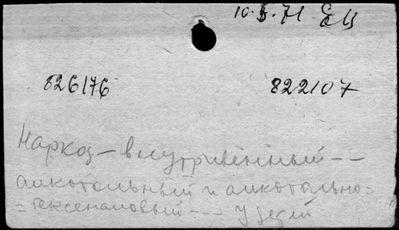 10.5.71 ЕЦ
826176 822107
Наркоз – внутривенный --
алкогольный и алкогольно-
= гексеналовый --- у детей